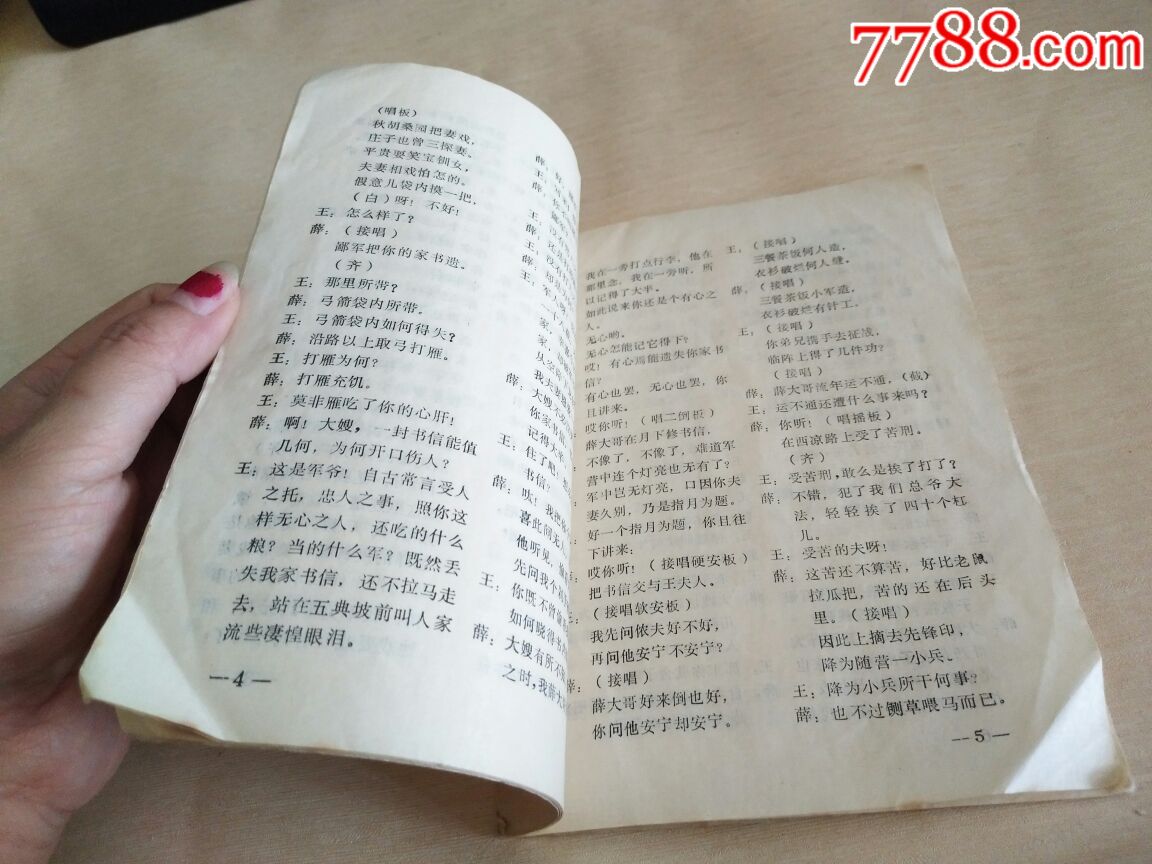 7788.com
(唱板)
秋胡桑园把妻戏,
庄子也曾三探妻。
平贵要笑宝钏女,
夫妻相戏怕怎的。
假意儿袋内摸一把,
(白)呀!不好!
王:怎么样了?
薛:(接唱)
鄙军把你的家书遗。
(齐)
王:那里所带?
薛:弓箭袋内所带。
王:弓箭袋内如何得失?
薛:沿路以上取弓打雁。
王:打雁为何?
薛:打雁充饥。
王:莫非雁吃了你的心肝!
薛:啊!大嫂,一封书信能值
几何,为何开口伤人?
王:这是军爷!自古常言受人
之托,忠人之事,照你这
样无心之人,还吃的什么
粮?当的什么军?既然丢
失我家书信,还不拉马走
去,站在五典坡前叫人家
流些凄惶眼泪。
—4—
薛:
王:
薛:
王:
薛:
王:没有
薛:
王:军人
家,
家,
从空
我夫妻
薛:大嫂不
你家书信
记得大
王:住了吧
书信?
薛:咦!我把你
喜此间无人
他听见,
先问我个
王:你既不曾偷
如何晓得书内
薛:大嫂有所不
之时,我薛大
我在一旁打点行李,他在
那里念,我在一旁听,所
以记得了大半。
如此说来你还是个有心之
人。
无心哟。
无心怎能记它得下?
哎!有心焉能遗失你家书
信?
有心也罢,无心也罢,你
且讲来。
哎你听!(唱二倒板)
薛大哥在月下修书信,
不像了,不像了,难道军
营中连个灯亮也无有了?
军中岂无灯亮,口因你夫
妻久别,乃是指月为题。
好一个指月为题,你且往
下讲来:
哎你听!(接唱硬安板)
把书信交与王夫人。
(接唱软安板)
我先问侬夫好不好,
再问他安宁不安宁?
(接唱)
薛大哥好来倒也好,
你问他安宁却安宁。
王:(接唱)
三餐茶饭何人造,
衣衫破烂何人缝。
薛:(接唱)
三餐茶饭小军造,
衣衫破烂有针工。
王:(接唱)
你弟兄携手去征战,
临阵上得了几件功?
(接唱)
薛:薛大哥流年运不通,(截)
王:运不通还遭什么事来吗?
薛:你听!(唱摇板)
在西凉路上受了苦刑。
(齐)
王:受苦刑,敢么是挨了打了?
薛:不错,犯了我们总爷大
法,轻轻挨了四十个杠
儿。
王:受苦的夫呀!
薛:这苦还不算苦,好比老鼠
拉瓜把,苦的还在后头
里。(接唱)
因此上摘去先锋印,
降为随营一小兵。
王:降为小兵所干何事?
薛:也不过铡草喂马而已。
—5—